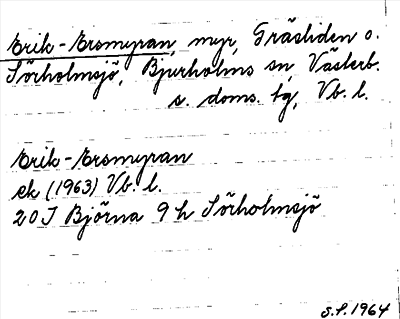 Erik-Ersmyran, myr, Gräsliden o.
Sörholmsjö, Bjurholms sn, Västerb.
s. doms. tg, Vb. l.
Erik-Ersmyran
ek (1963) Vb. l.
20J Björna 9 h Sörholmsjö
S.F. 1964